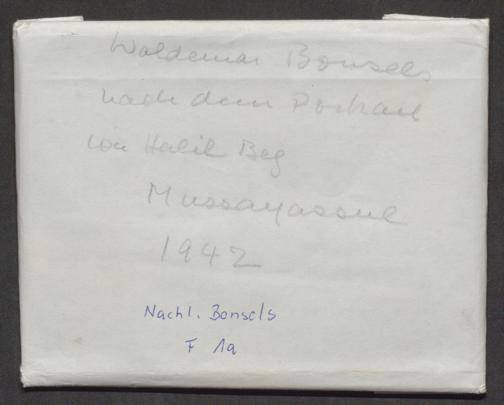 Waldemar Bonsels
nach dem Portrait
von Halil Beg
Mussayassul
1942
Nachl. Bonsels
F 1a